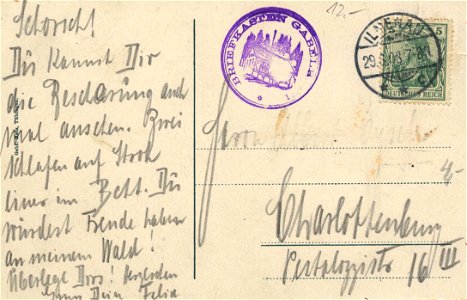 Schorsch!
Du kannst Dir
die Bescherung auch
mal ansehen. Zwei
schlafen auf Stroh
einer im Bett. Du
würdest Freude haben
an meinem Wald!
Überlege Dirs! Herzlichen
Dein Felix
12.-
BRIEFKASTEN GABELB
* 1 *
ILMENAU
29.
5
DEUTSCHES REICH
Herrn Albert
Charlottenburg
Pestalozzistr 16 III